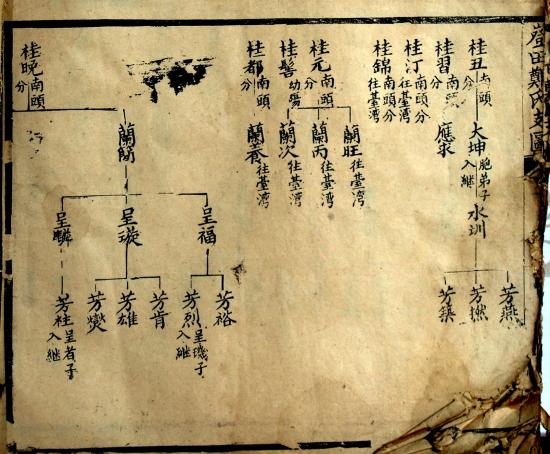 桂丑南頭分
大坤胞弟子入繼
水訓
芳燕
芳撚
芳築
桂習南頭分
應求
桂汀南頭分往臺灣
桂錦南頭分往臺灣
桂元南頭分
蘭旺往臺灣
蘭丙往臺灣
蘭次往臺灣
桂髻幼殤
桂都南頭分
蘭養往臺灣
桂晚南頭分
蘭
呈福
芳裕
芳烈呈璣子入繼
呈璇
芳肯
芳雄
芳燮
呈麟
芳桂呈者子入繼